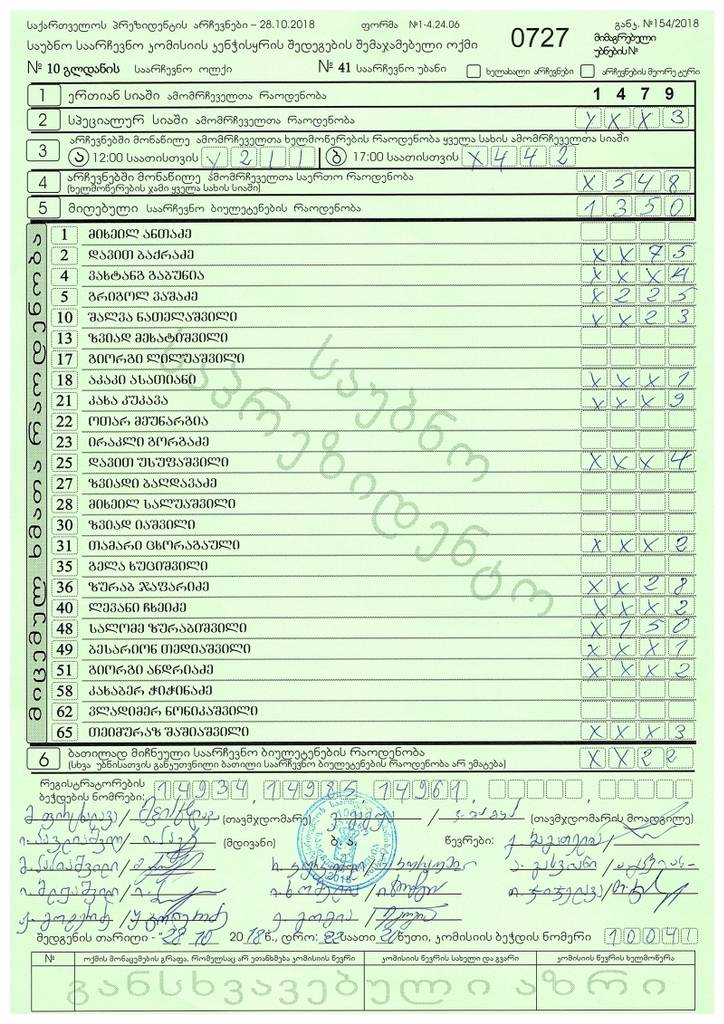 საქართველოს პრეზიდენტის არჩევნები – 28.10.2018 ფორმა №1-4.24.06 განკ. №154/2018
საუბნო საარჩევნო კომისიის კენჭისყრის შედეგების შემაჯამებელი ოქმი 0727 მიმაგრებული უბნების №
№ 10 გლდანის საარჩევნო ოლქი № 41 საარჩევნო უბანი ხელახალი არჩევნები არჩევნების მეორე ტური
1 ერთიან სიაში ამომრჩეველთა რაოდენობა 1 4 7 9
2 სპეციალურ სიაში ამომრჩეველთა რაოდენობა X X X 3
3 არჩევნებში მონაწილე ამომრჩეველთა ხელმოწერების რაოდენობა ყველა სახის ამომრჩეველთა სიაში
ა 12:00 საათისთვის X 2 1 1 ბ 17:00 საათისთვის X 4 4 2
4 არჩევნებში მონაწილე ამომრჩეველთა საერთო რაოდენობა X 5 4 8
(ხელმოწერების ჯამი ყველა სახის სიაში)
5 მიღებული საარჩევნო ბიულეტენების რაოდენობა 1 3 5 0
მიცემულ ხმათა რაოდენობა
1 მიხეილ ანთაძე
2 დავით ბაქრაძე X X 7 5
4 ვახტანგ გაბუნია X X X 4
5 გრიგოლ ვაშაძე X 2 2 5
10 შალვა ნათელაშვილი X X 2 3
13 ზვიად მეხატიშვილი
17 გიორგი ლილუაშვილი
18 აკაკი ასათიანი X X X 1
21 კახა კუკავა X X X 9
22 ოთარ მეუნარგია
23 ირაკლი გორგაძე
25 დავით უსუფაშვილი X X X 4
27 ზვიადი ბაღდავაძე
28 მიხეილ სალუაშვილი
30 ზვიად იაშვილი
31 თამარი ცხორაგაული X X X 2
35 გელა ხუციშვილი
36 ზურაბ ჯაფარიძე X X 2 8
40 ლევანი ჩხეიძე X X X 2
48 სალომე ზურაბიშვილი X 1 5 0
49 ბესარიონ თედიაშვილი X X X 1
51 გიორგი ანდრიაძე X X X 2
58 კახაბერ ჭიჭინაძე
62 ვლადიმერ ნონიკაშვილი
65 თეიმურაზ შაშიაშვილი X X X 3
საუბნო
საპრეზიდენტო
6 ბათილად მიჩნეული საარჩევნო ბიულეტენების რაოდენობა X X 2 2
(სხვა უბნისათვის განკუთვნილი ბათილი საარჩევნო ბიულეტენების რაოდენობა არ ემატება)
რეგისტრატორების ბეჭდების ნომრები: 14934, 14985, 14961
(თავმჯდომარე) (თავმჯდომარის მოადგილე)
(მდივანი) ბ. ა. წევრები:
შედგენის თარიღი - 28 10 2018 წ., დრო: 22 საათი 20 წუთი, კომისიის ბეჭდის ნომერი 10041
№ ოქმის მონაცემების გრაფა, რომელსაც არ ეთანხმება კომისიის წევრი კომისიის წევრის სახელი და გვარი კომისიის წევრის ხელმოწერა
განსხვავებული აზრი